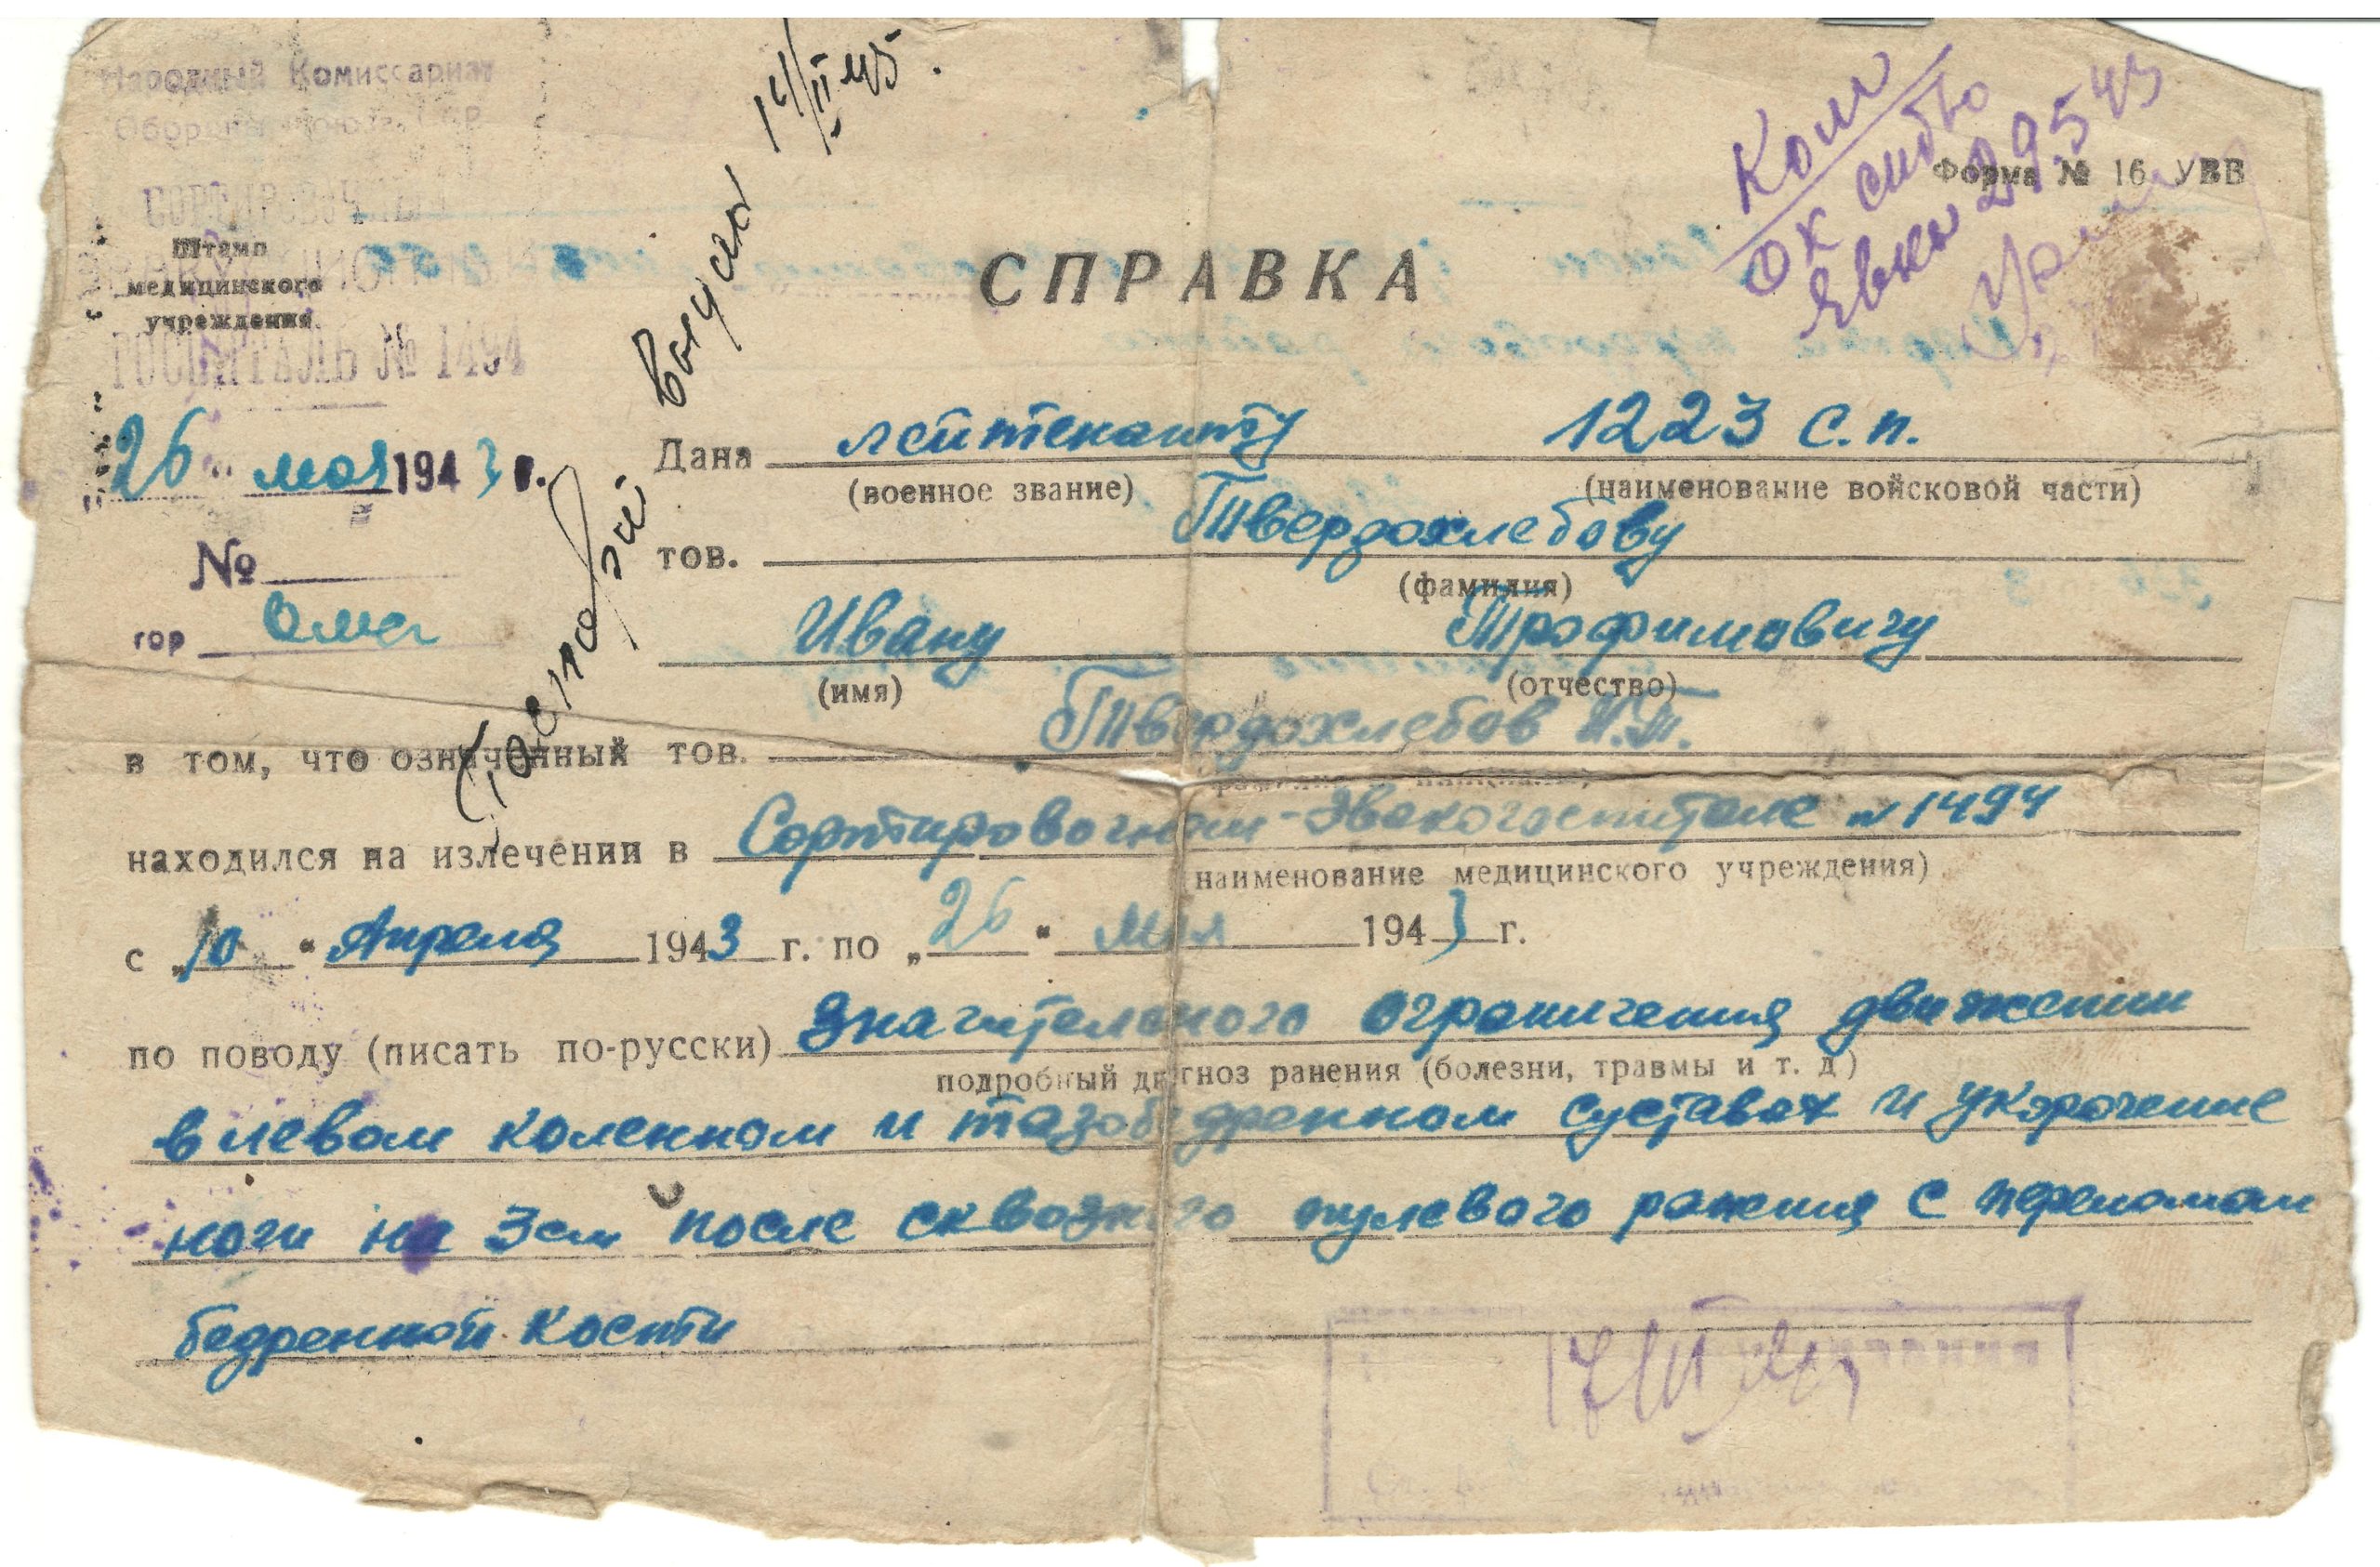 Народный Комиссариат
СОРТИРОВОЧНЫЙ
ГОСПИТАЛЬ № 1494
Штамп
медицинского
учреждения
14/II 45.
Форма № 16 УВВ
явка 29.5 43
СПРАВКА
26 мая 1943 г.
№
гор Омск
Дана лейтенанту 1223 с.п.
(военное звание) (наименование войсковой части)
тов. Твердохлебову
(фамилия)
Ивану Трофимовичу
(имя) (отчество)
в том, что означенный тов. Твердохлебов И.Т.
находился на излечении в Сортировочном-Эвакогоспитале №1494
(наименование медицинского учреждения)
с „10“ Апреля 1943 г. по „26“ Мая 1943 г.
по поводу (писать по-русски) Значительного ограничения движений
подробный диагноз ранения (болезни, травмы и т. д)
в левом коленном и тазобедренном суставах и укорочение
ноги на 3 см после сквозного пулевого ранения с переломом
бедренной кости